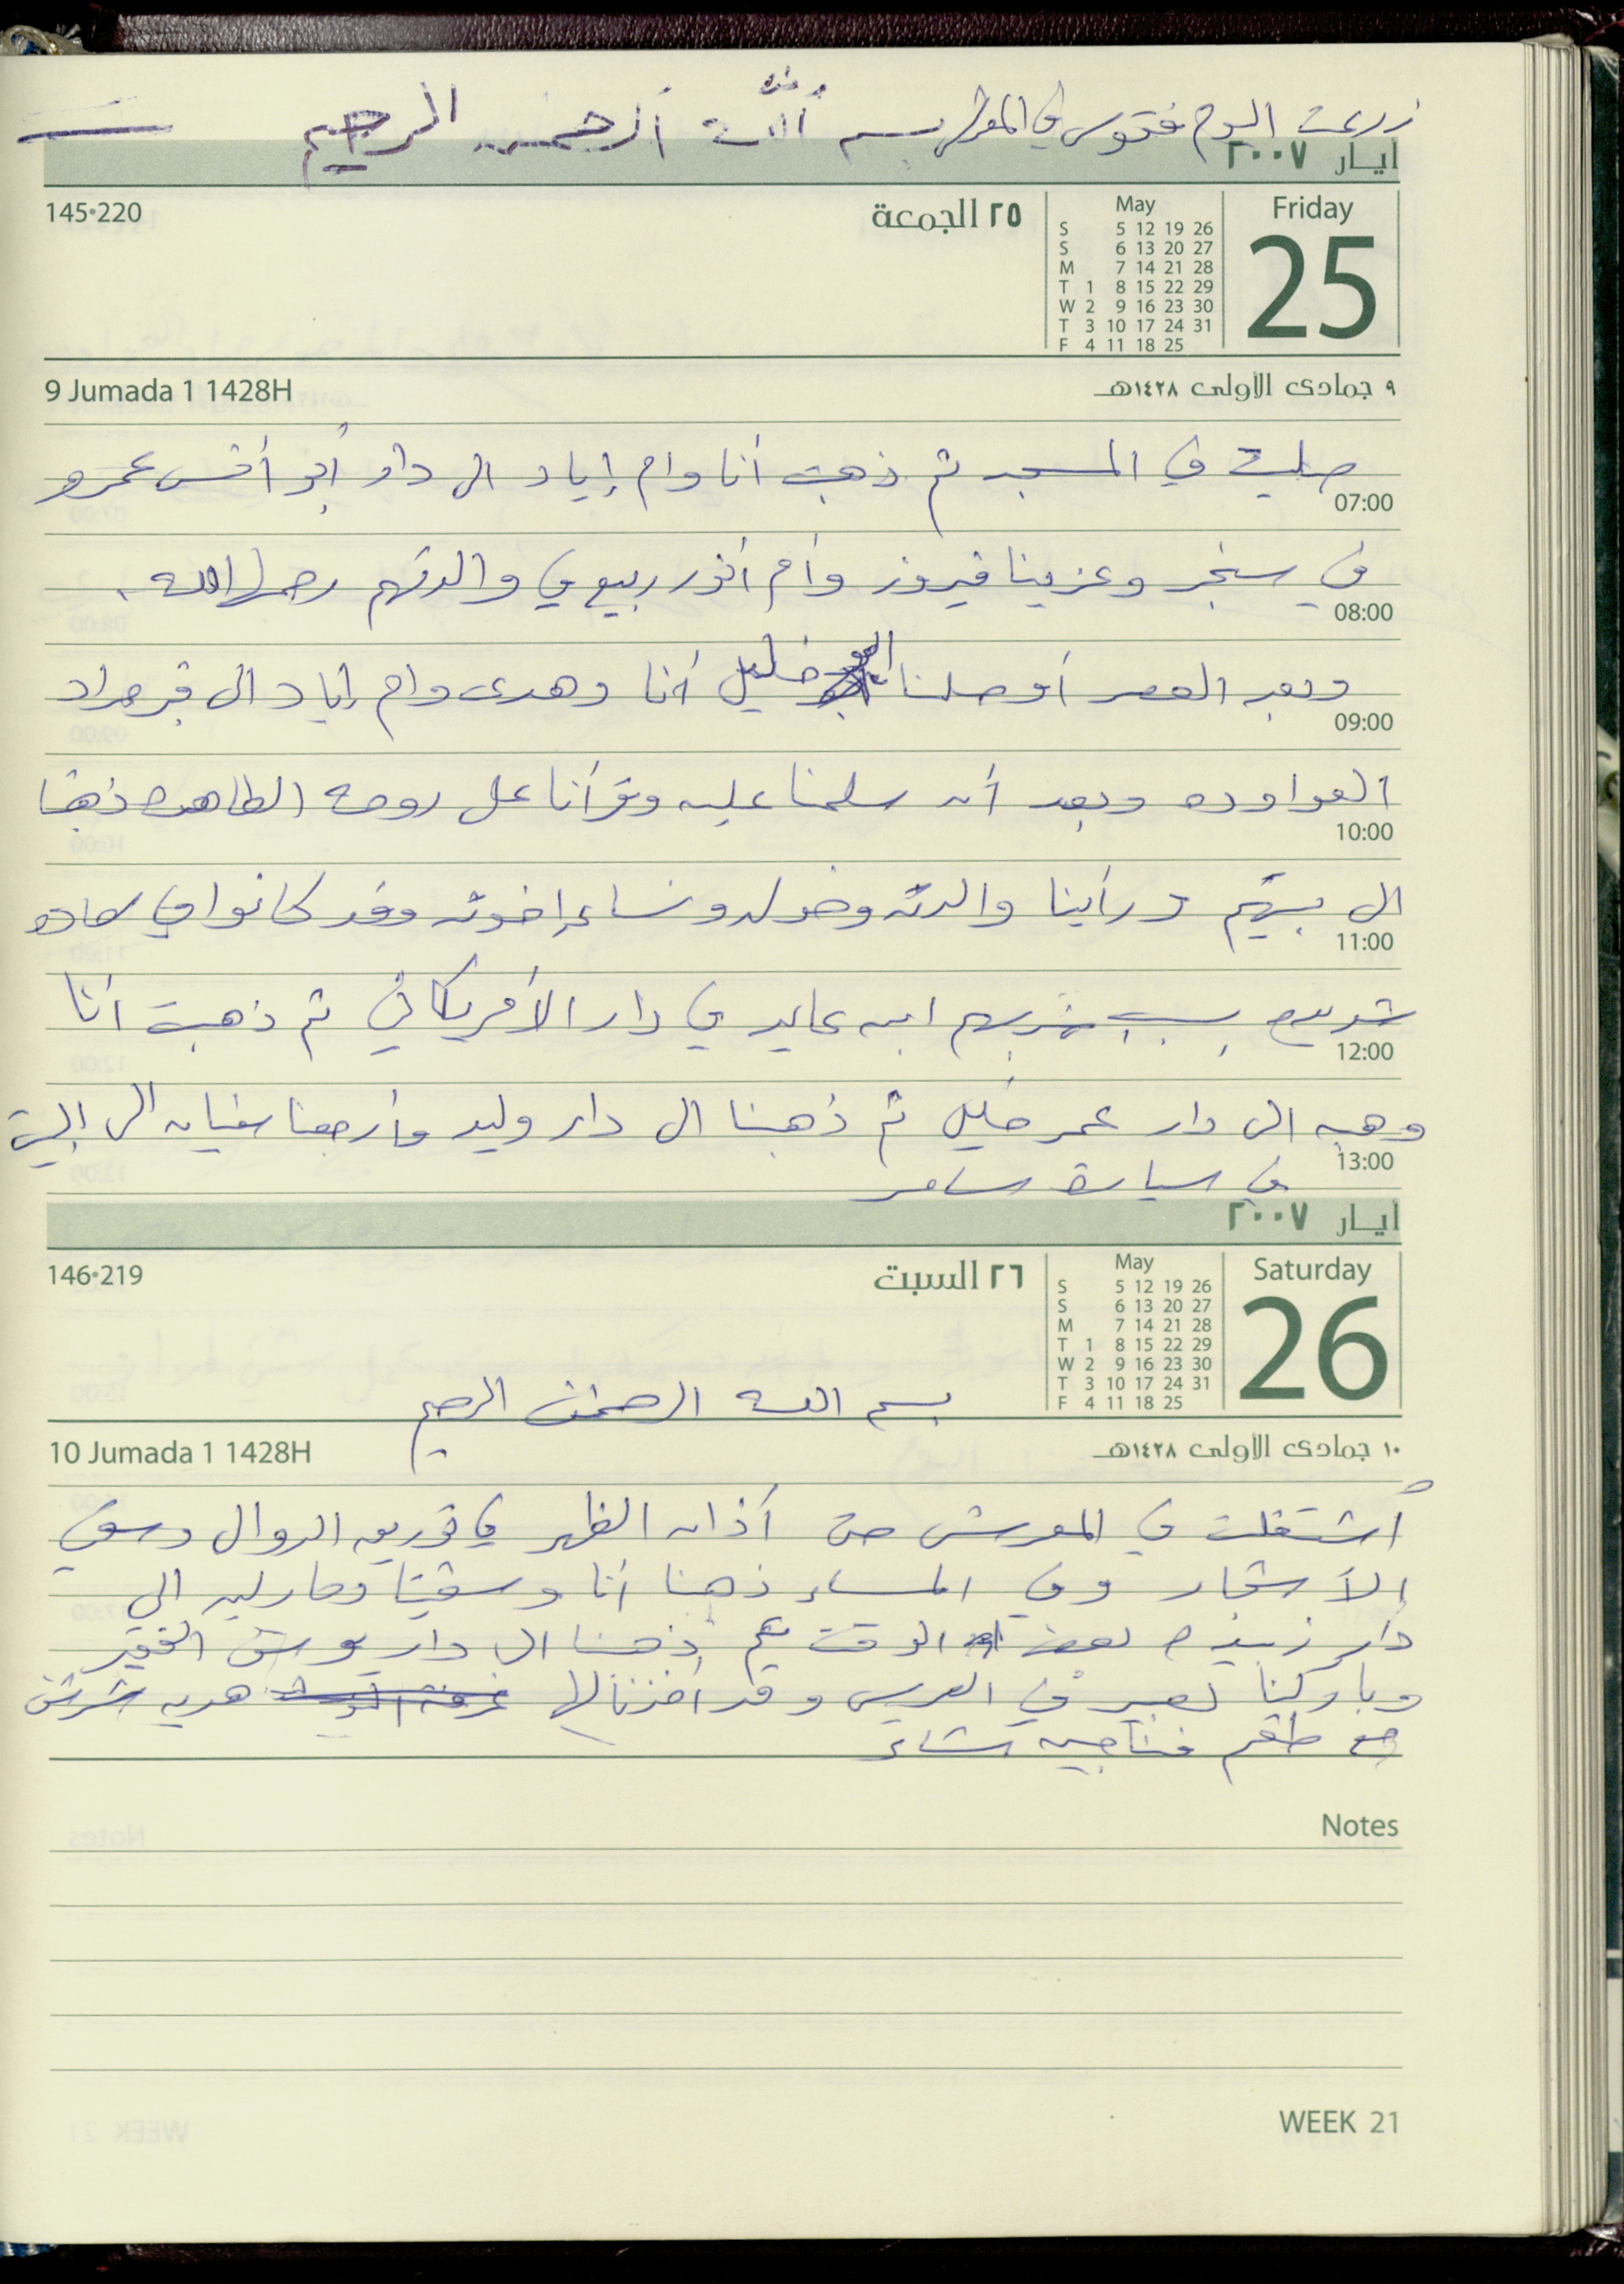 زرعت اليوم فقوس في المغراس بسم الله الرحمن الرحيم
أيار ٢٠٠٧
Friday
25
May
S 5 12 19 26
S 6 13 20 27
M 7 14 21 28
T 1 8 15 22 29
W 2 9 16 23 30
T 3 10 17 24 31
F 4 11 18 25
٢٥ الجمعة
145•220
٩ جمادى الأولى ١٤٢٨هـ
9 Jumada 1 1428H
صليت في المسجد ثم ذهبت انا وام إياد الى دار أبو أنس عمرو
07:00
في سنجر وعزينا فيروز وأم انور ربيع في والدتهم رحمها الله
08:00
وبعد العصر أوصلنا خليل أنا وهدى وام إياد الى قبر مراد
09:00
العواوده وبعد أن سلمنا عليه وقرأنا على روحه الطاهرة ذهبنا
10:00
الى بيتهم ورأينا والدته وخوله ونساء إخوته وقد كانوا في
11:00
بسبب ابن عايد في دار الأمريكاني ثم ذهبت أنا
12:00
وهبه الى دار عمر خليل ثم ذهبنا الى دار وليد وأرجعنا سفيان الى البيت
13:00
في سيارة سامر
أيار ٢٠٠٧
Saturday
26
May
S 5 12 19 26
S 6 13 20 27
M 7 14 21 28
T 1 8 15 22 29
W 2 9 16 23 30
T 3 10 17 24 31
F 4 11 18 25
٢٦ السبت
146•219
بسم الله الرحمن الرحيم
١٠ جمادى الأولى ١٤٢٨هـ
10 Jumada 1 1428H
أشتغلت في المعرش حتى أذان الظهر في توريق الدوال وسقي
الأشجار وفي المساء ذهبنا أنا وشقيقتا الى
دار زبيدة لبعض الوقت ثم ذهبنا الى دار يونس الفقير
وباركنا لعبير في العرس وقد اخذنا لها هديه شرشف
مع طقم فناجين شاي
Notes
WEEK 21